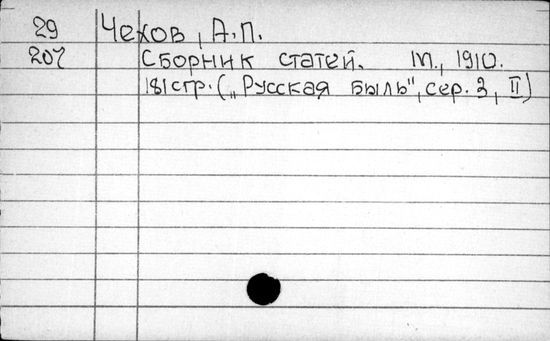 29 Чехов, А.П.
207 Сборник статей. М., 1910.
181 стр. („Русская быль", сер. 3, II)